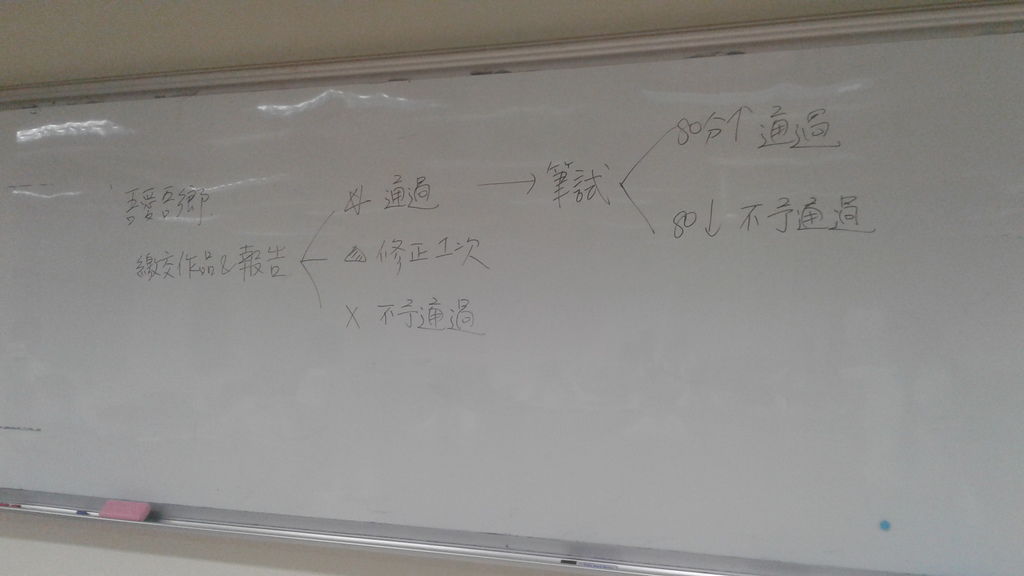 吾愛吾鄉
繳交作品&報告
通過
△ 修正1次
X 不予通過
→ 筆試
80分↑ 通過
80↓ 不予通過